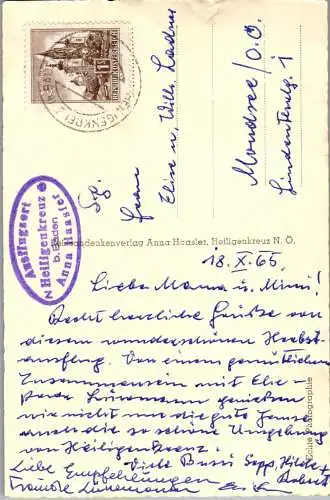 HEILIGENKREUZ
S 1
REPUBLIK ÖSTERREICH
Sg.
Frau
Elise u. Willi
Mondsee/O.Ö.
Lindenweg 1
Ausflugsort
Heiligenkreuz
b. Baden
Anna Haasler
N
Reiseandenkenverlag Anna Haasler, Heiligenkreuz N. Ö.
18. X. 65
Liebe Mama u. Mimi!
Recht herzliche Grüße von
diesem wunderschönen Herbst-
ausflug. Von einem gemütlichen
Zusammensein mit Ehe-
paar genießen
wir nicht nur die gute Jause
auch die so schöne Umgebung
von Heiligenkreuz.
Viele Bussi Sepp, Hilde +
Robert
Liebe Empfehlungen
Echte Photographie